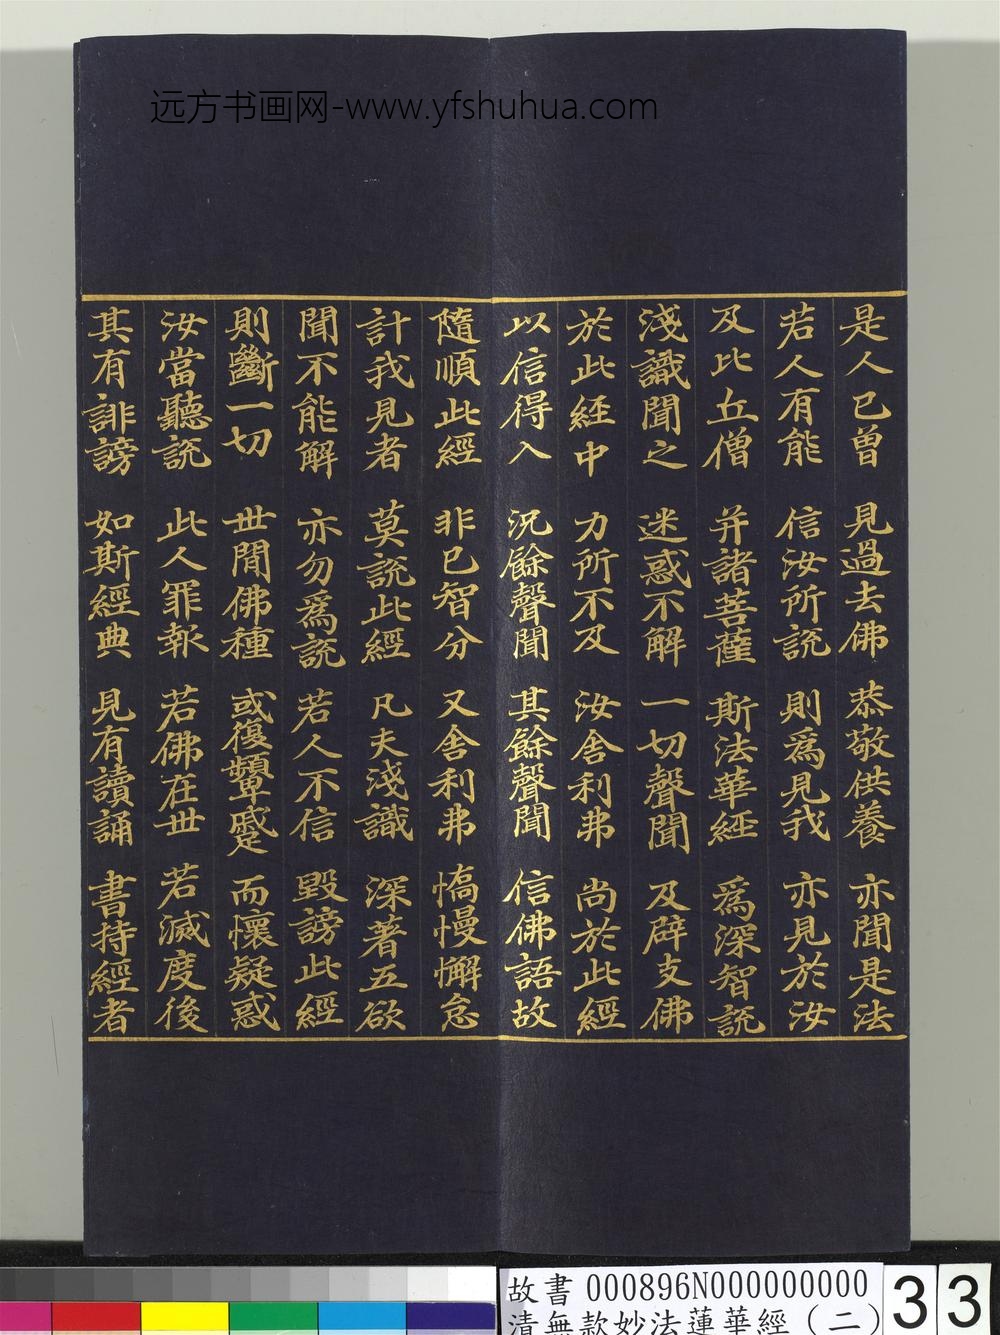 远方书画网-www.yfshuhua.com
是人已曾 見過去佛 恭敬供養 亦聞是法
若人有能 信汝所説 則為見我 亦見於汝
及比丘僧 并諸菩薩 斯法華經 為深智説
淺識聞之 迷惑不解 一切聲聞 及辟支佛
於此經中 力所不及 汝舍利弗 尚於此經
以信得入 況餘聲聞 其餘聲聞 信佛語故
隨順此經 非己智分 又舍利弗 憍慢懈怠
計我見者 莫説此經 凡夫淺識 深著五欲
聞不能解 亦勿為説 若人不信 毀謗此經
則斷一切 世間佛種 或復顰蹙 而懷疑惑
汝當聽説 此人罪報 若佛在世 若滅度後
其有誹謗 如斯經典 見有讀誦 書持經者
故書 000896N000000000 33
清無款妙法蓮華經（二）